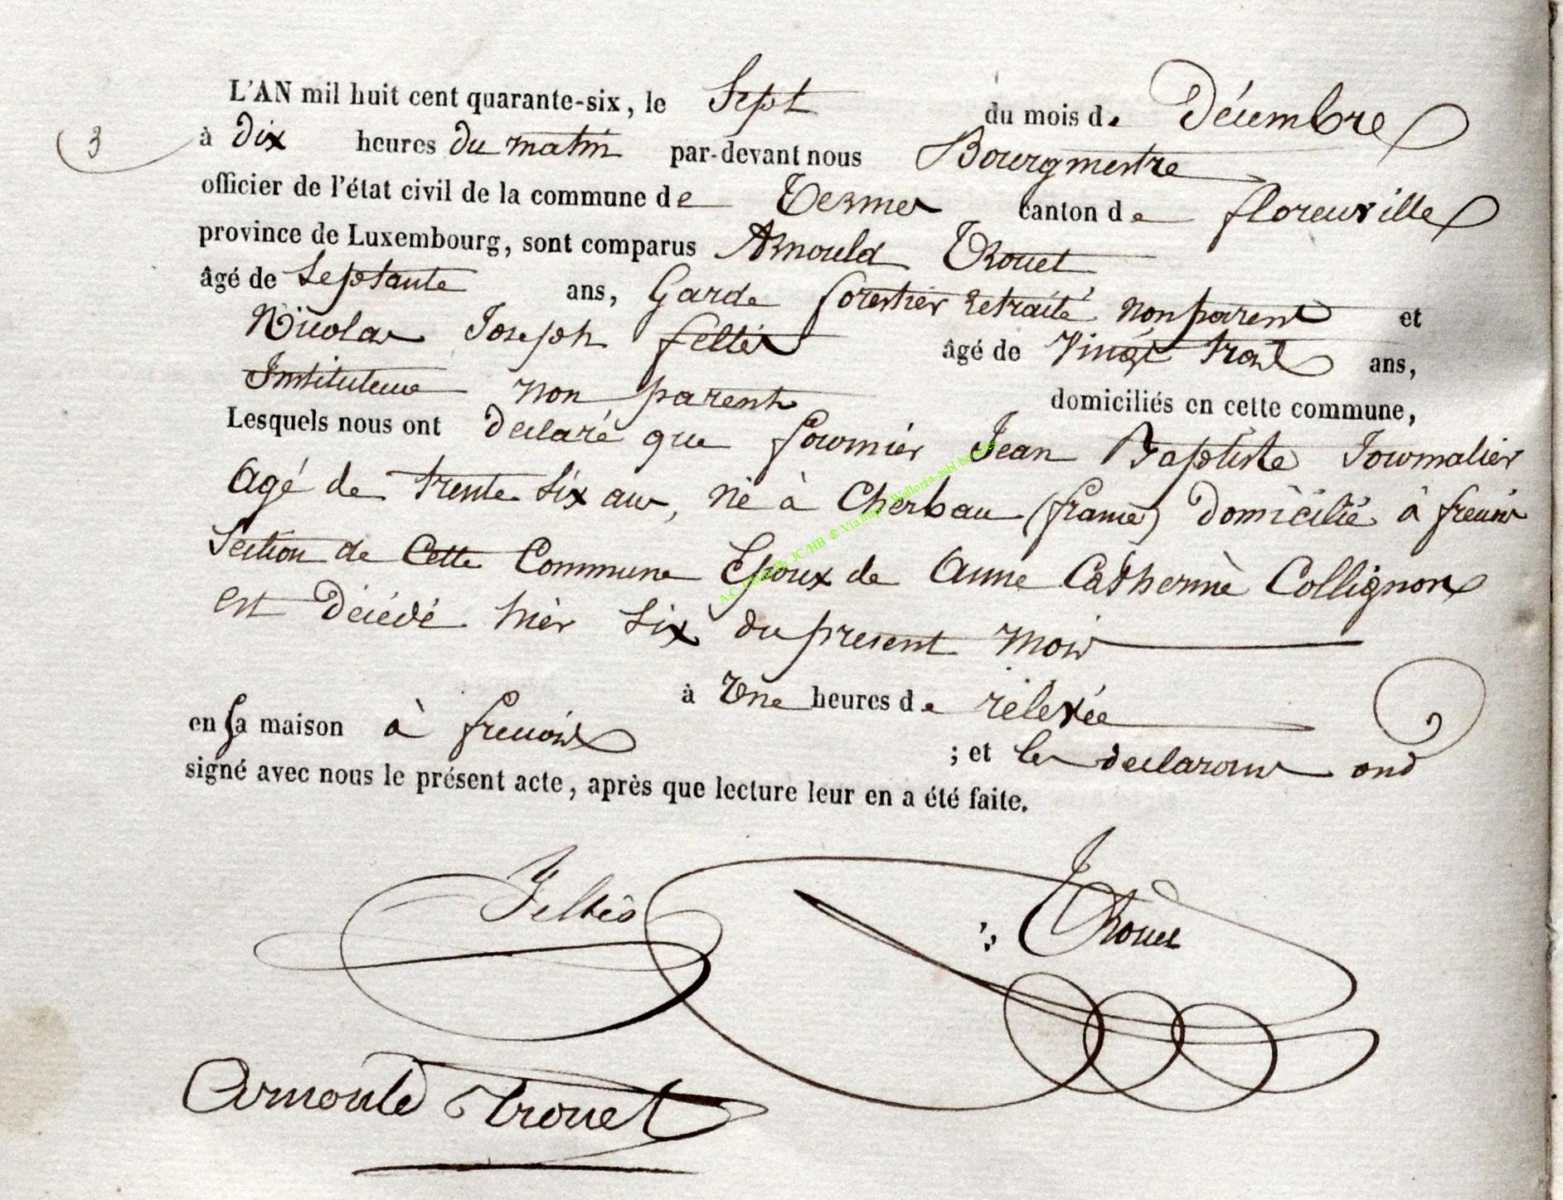 L'AN mil huit cent quarante-six, le Sept du mois de Décembre
3
à dix heures du matin par-devant nous Bourgmestre
officier de l'état civil de la commune de Termes canton de florenville
province de Luxembourg, sont comparus Arnould Trouet
âgé de Septante ans, Garde forestier retraité non parent et
Nicolas Joseph feltés âgé de vingt trois ans,
Instituteur non parent domiciliés en cette commune,
Lesquels nous ont déclaré que fournier Jean Baptiste Journalier
agé de trente six ans, né à Cherbau (france) domicilié à frenois
Section de Cette Commune Epoux de Anne Catherine Collignon
est décédé hier six du présent mois
à une heures de relevée
en sa maison à frenois ; et les déclarans ont
signé avec nous le présent acte, après que lecture leur en a été faite.
Feltés
Trouet
Arnould Trouet